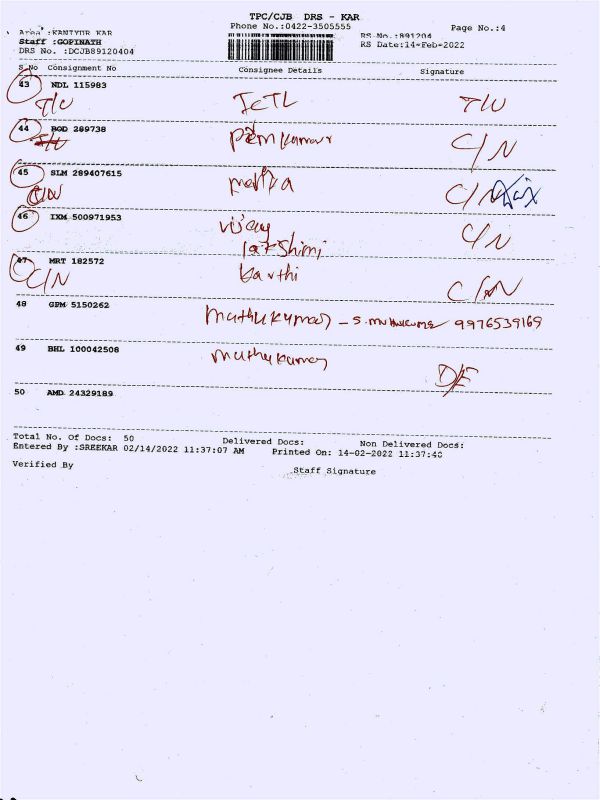 TPC/CJB DRS - KAR
Phone No.:0422-3505555
Page No.:4
Area :KANIYUR KAR
RS No.:891204
Staff :GOPINATH
RS Date:14-Feb-2022
DRS No. :DCJB89120404
S.No Consignment No Consignee Details Signature
43 NDL 115983 ICTL T/U
T/U
44 BOD 289738 Prem Kumar C/N
45 SLM 289407615 C/N
C/N
46 IXM 500971953 Vijay C/N
lakshimi
47 MRT 182572 karthi C/N
C/N
48 GPM 5150262 muthukumar - S. muthukumar 9976539169
49 BHL 100042508 muthukumar D/F
50 AMD 24329189
Total No. Of Docs: 50 Delivered Docs: Non Delivered Docs:
Entered By :SREEKAR 02/14/2022 11:37:07 AM Printed On: 14-02-2022 11:37:40
Verified By Staff Signature